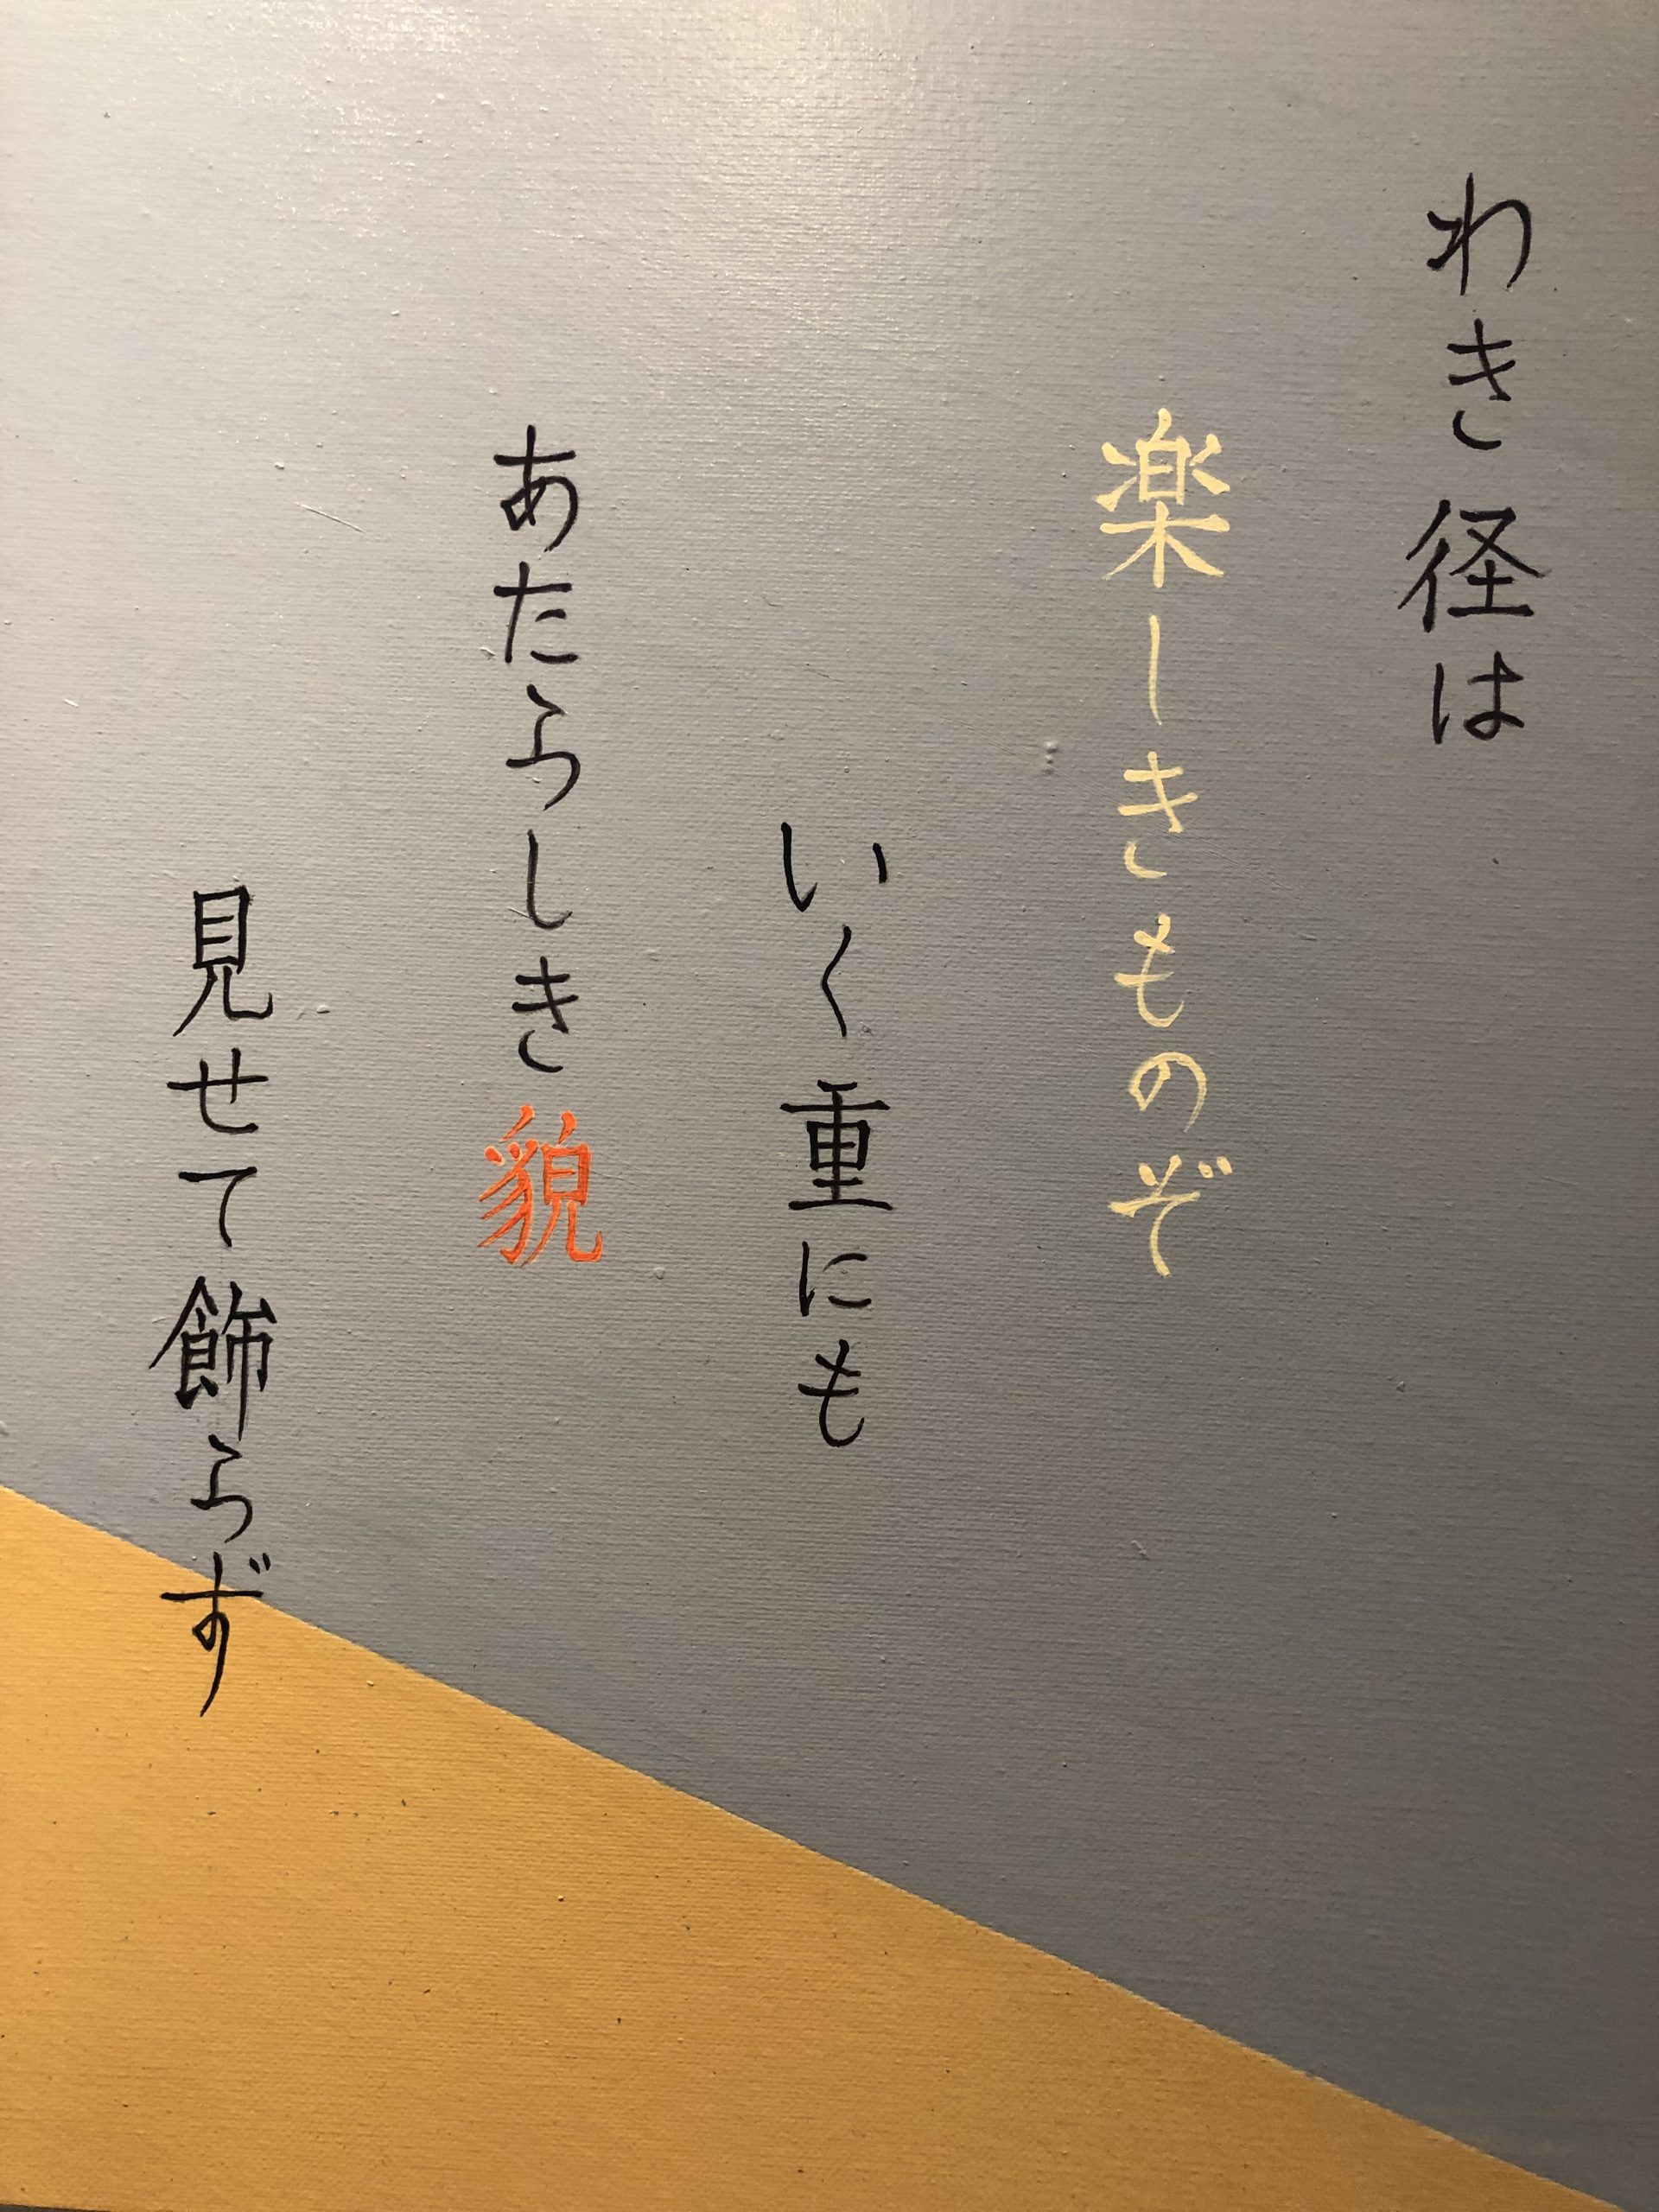 わき径は
楽しきものぞ
いく重にも
あたらしき貌
見せて飾らず